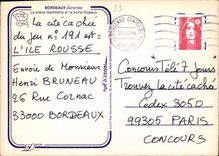 33
BORDEAUX (Gironde)
La place Gambetta et la porte Dijeaux
La cité cachée
du jeu n° 191 est
L'ILE ROUSSE
Envoie de Monsieur
Henri BRUNEAU
26 Rue Cornac
33000 BORDEAUX
Concours Télé 7 Jours
Trouvez la cité cachée
Cédex 3050
99305 PARIS
CONCOURS